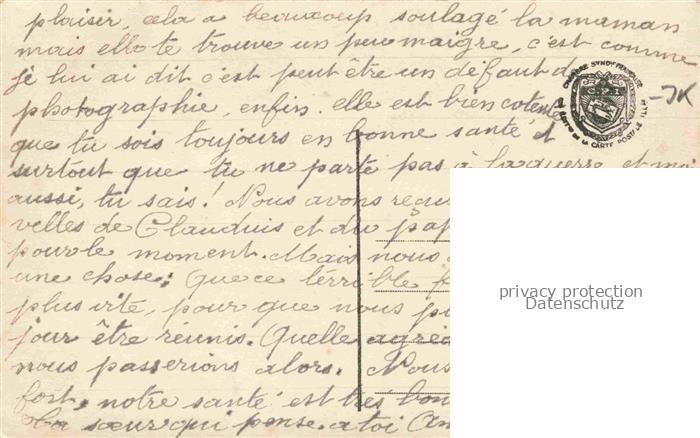 plaisir, cela a beaucoup soulagé la maman
mais elle te trouve un peu maigre, c'est comme
je lui ai dit c'est peut être un défaut de
photographie, enfin elle est bien contente
que tu sois toujours en bonne santé et
surtout que tu ne parte pas à la guerre, et moi
aussi, tu sais! Nous avons reçu
velles de Claudius et du pap
pour le moment. Mais nous
une chose: Que ce térrible f
plus vite, pour que nous pu
jour être réunis. Quelle agréa
nous passerions alors. Nous
fort, notre santé est très bon
ta sœur qui pense à toi
CHAMBRE SYNDle FRANÇAISE
DE LA CARTE POSTALE ILLée
-JK
privacy protection
Datenschutz